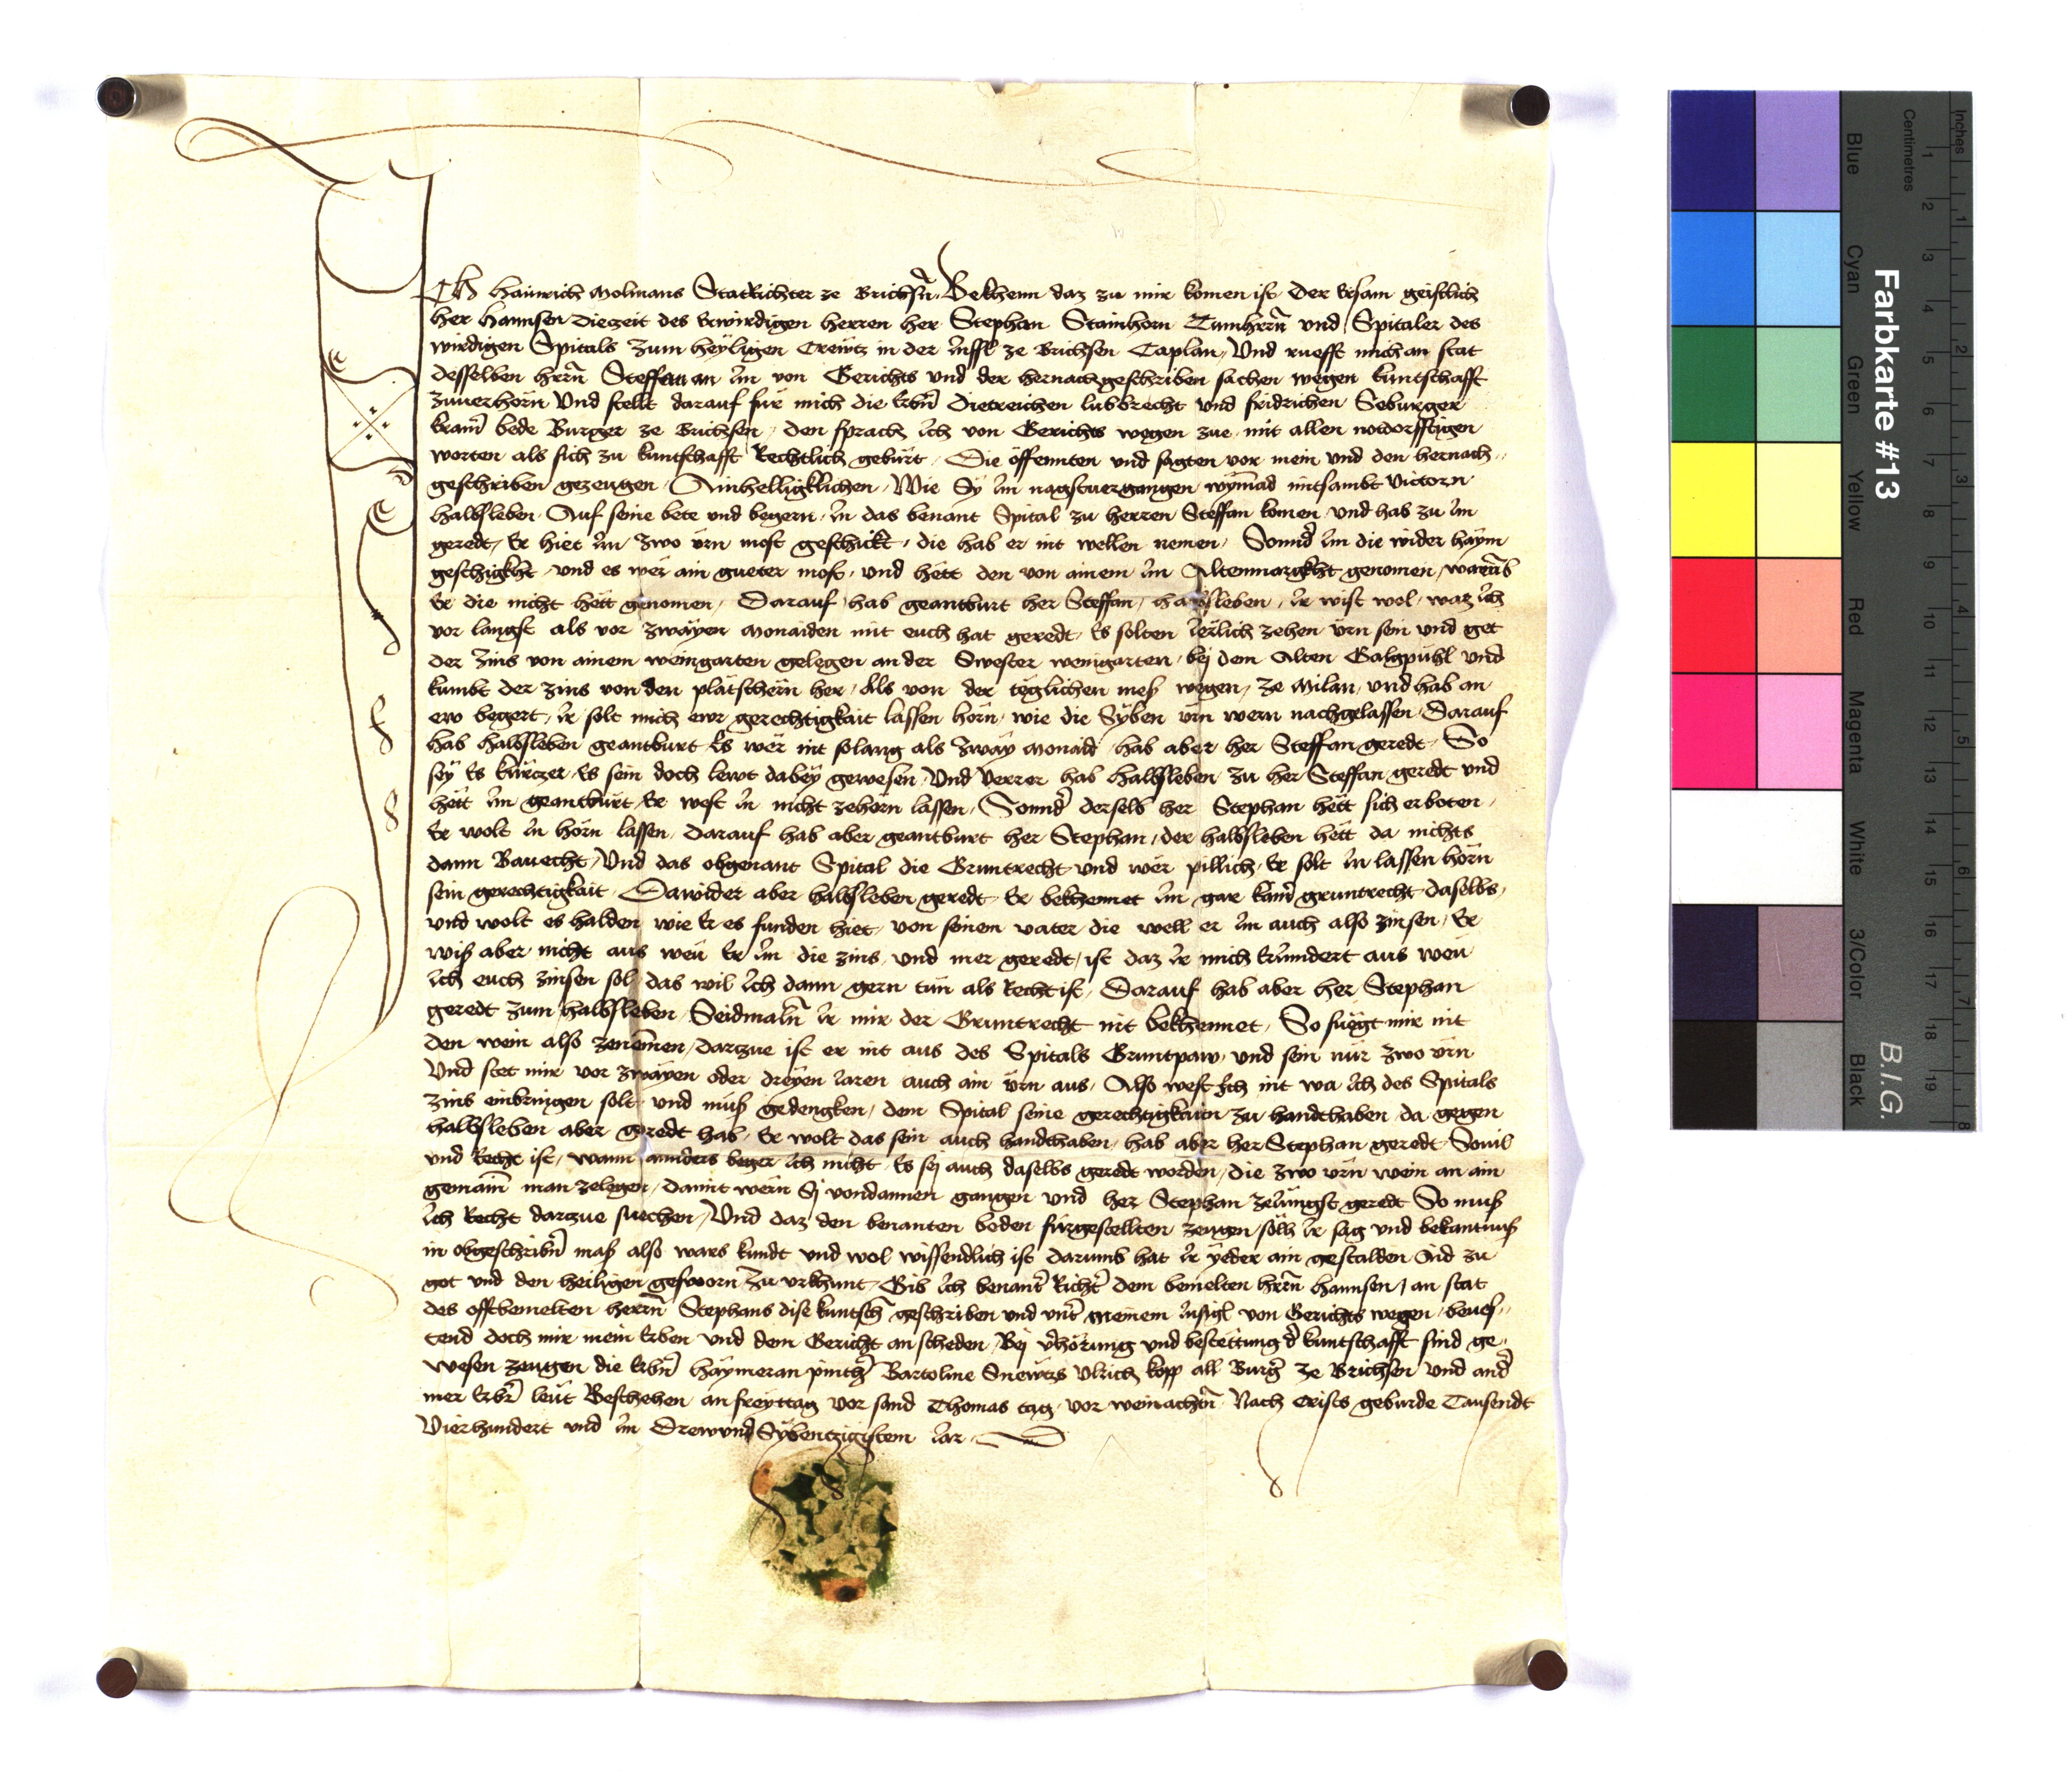 Ich Hainrich Molmans StatRichter ze Brichsn̄. Bekhenn daz zu mir komen ist. Der Ersam geistlich
her Hannsen Diezeit des Erwirdigen herren her Stephan Stainhorn Tumhern̄ und Spitaler des
wirdigen Spitals zum heyligen Crewtz in der Jnssl ze Brichsen Caplan, Und ruefft mich an stat
desselben hern̄ Steffan an Jm von Gerichts und der hernachgeschriben sachen wegen kuntschafft
zuuerhörn Und stellt darauf für mich die Erbn̄ Dietreichen lubbrecht und fridrichen Seburger
kram̄ bede Burger ze Brichsen, den sprach Jch von Gerichts wegen zue mit allen notdorfftigen
worten als sich zu kuntschafft Rechtlich gebürt. Die öffennten und sagten vor mein und den hernach
geschriben gezeugen. Ainhelligklichen. Wie Sy Jm nagstuergangen wym̄ad mitsambt Victorn
halbsleben. Auf seine bete und begern. Jn das benant Spital zu herren Steffan komen und hab zu Jm
geredt, Er hiet Jm zwo ürn most geschickt, die hab er nit wellen nemen, Sonnd' Jm die wider haym
geschigkht, und es wer ain gueter most, und hett den von ainem Jm Altenmargkht genomen, warūb
Er die nicht hett genomen, Darauf hab geantburt her Steffan, halbsleben, Jr wist wol, waz Jch
vor langst als vor zwayen monaiden mit euch hat geredt, Es solten Jerlich zehen ürn sein und get
der zins von ainem weingarten gelegen an der Swester weingarten, bej dem Alten Galgpühl und
kumbt der zins von den plätschern her, Als von der täglichen meß wegen, ze Milan, und hab an
ew begert, Jr solt mich ewr gerechtigkait lassen hörn, wie die Syben ürn wern nachgelassen. Darauf
hab halbsleben geantburt Es wer nit solang als zway monaid, hab aber her Steffan geredt, So
sey Es kürczer, Es sein doch lewt dabey gewesen, Und verrer hab halbsleben zu her Steffan geredt und
hett Jm geantburt, Er west Jn nicht zehorn lassen, Sonnd' derselb her Stephan hett sich erboten,
Er wolt Jn hörn lassen, darauf hab aber geantburt her Stephan, der halbsleben hett da nichts
dann Baurecht, Und das obgenant Spital die Gruntrecht und wer pillich, Er solt Jn lassen hörn
sein gerechtigkait. Dawider aber halbsleben geredt, Er bekhennet Jm gar kain gruntrecht daselbs,
und wolt es halden wie Er es funden hiet, von seinem vater die well er Jm auch also zinsen, Er
wiß aber nicht aus weu Er Jm die zins, und mer geredt, ist daz Jr mich Erjnndert aus weu
Jch euch zinsen sol, das wil Jch dann gern tün als Recht ist, Darauf hab aber her Stephan
geredt zum halbsleben, Seidmaln̄ Jr mir der Gruntrecht nit bekhennet, So fuegt mir nit
den wein also zenem̄en, darzue ist er nit aus des Spitals Gruntpaw, und sein nür zwo ürn
Und stet mir vor zwayen oder dreyen Jaren auch ain ürn aus, Also west Jch nit wa Jch des Spitals
zins einbringen solt, und muß gedengken, dem Spital seine gerechtigkaitn zu handthaben, da gegen
halbsleben aber geredt hab, Er wolt das sein auch handthaben, hab aber her Stephan geredt, Souil
und Recht ist, wann annders beger Jch nicht, Es sej auch daselbs geredt worden, die zwo ürn wein an ain
gemain̄ man zelegen, damit wern Sj vondannen gangen und her Stephan zelängst geredt So muß
Jch Recht darzue suechen, Und daz den benanten beden fürgestellten zeugen, sölh Jr sag und bekantnuß
in obgeschribn̄ maß also wars kundt und wol wissendlich ist, darumb hat Jr yeder ain gestalden Aid zu
got und den heiligen gesworn, Zu urkhunt, Gib Jch benant' Richt' dem bemelten hern̄ hannsen, an stat
des offtbemelten hern̄ Stephans dise kuntsch̄ geschriben und unt' meinem Jnsigl von Gerichts wegen, beues,,
tend doch mir mein Erben und dem Gericht an scheden, Bej v'hörung und bestettung d' kuntschafft sind ge,,
wesen zeugen die Erbn̄ Haymeran pinth' Bartolme Snewtzs Ulrich kopp all Burg' ze Brichsen und and'
mer Erbr̄ leut Beschehen an freyttag vor sand Thomas tag, vor weinachtn̄ Nach Crists geburde Tausendt
Vierhundert und Jm DrewundSybentzigistem Jar.
Farbkarte #13
B.I.G.
Blue Cyan Green Yellow Red Magenta White 3/Color Black
Centimetres
1 2 3 4 5 6 7 8 9 10 11 12 13 14 15 16 17 18 19
Inches
1 2 3 4 5 6 7 8